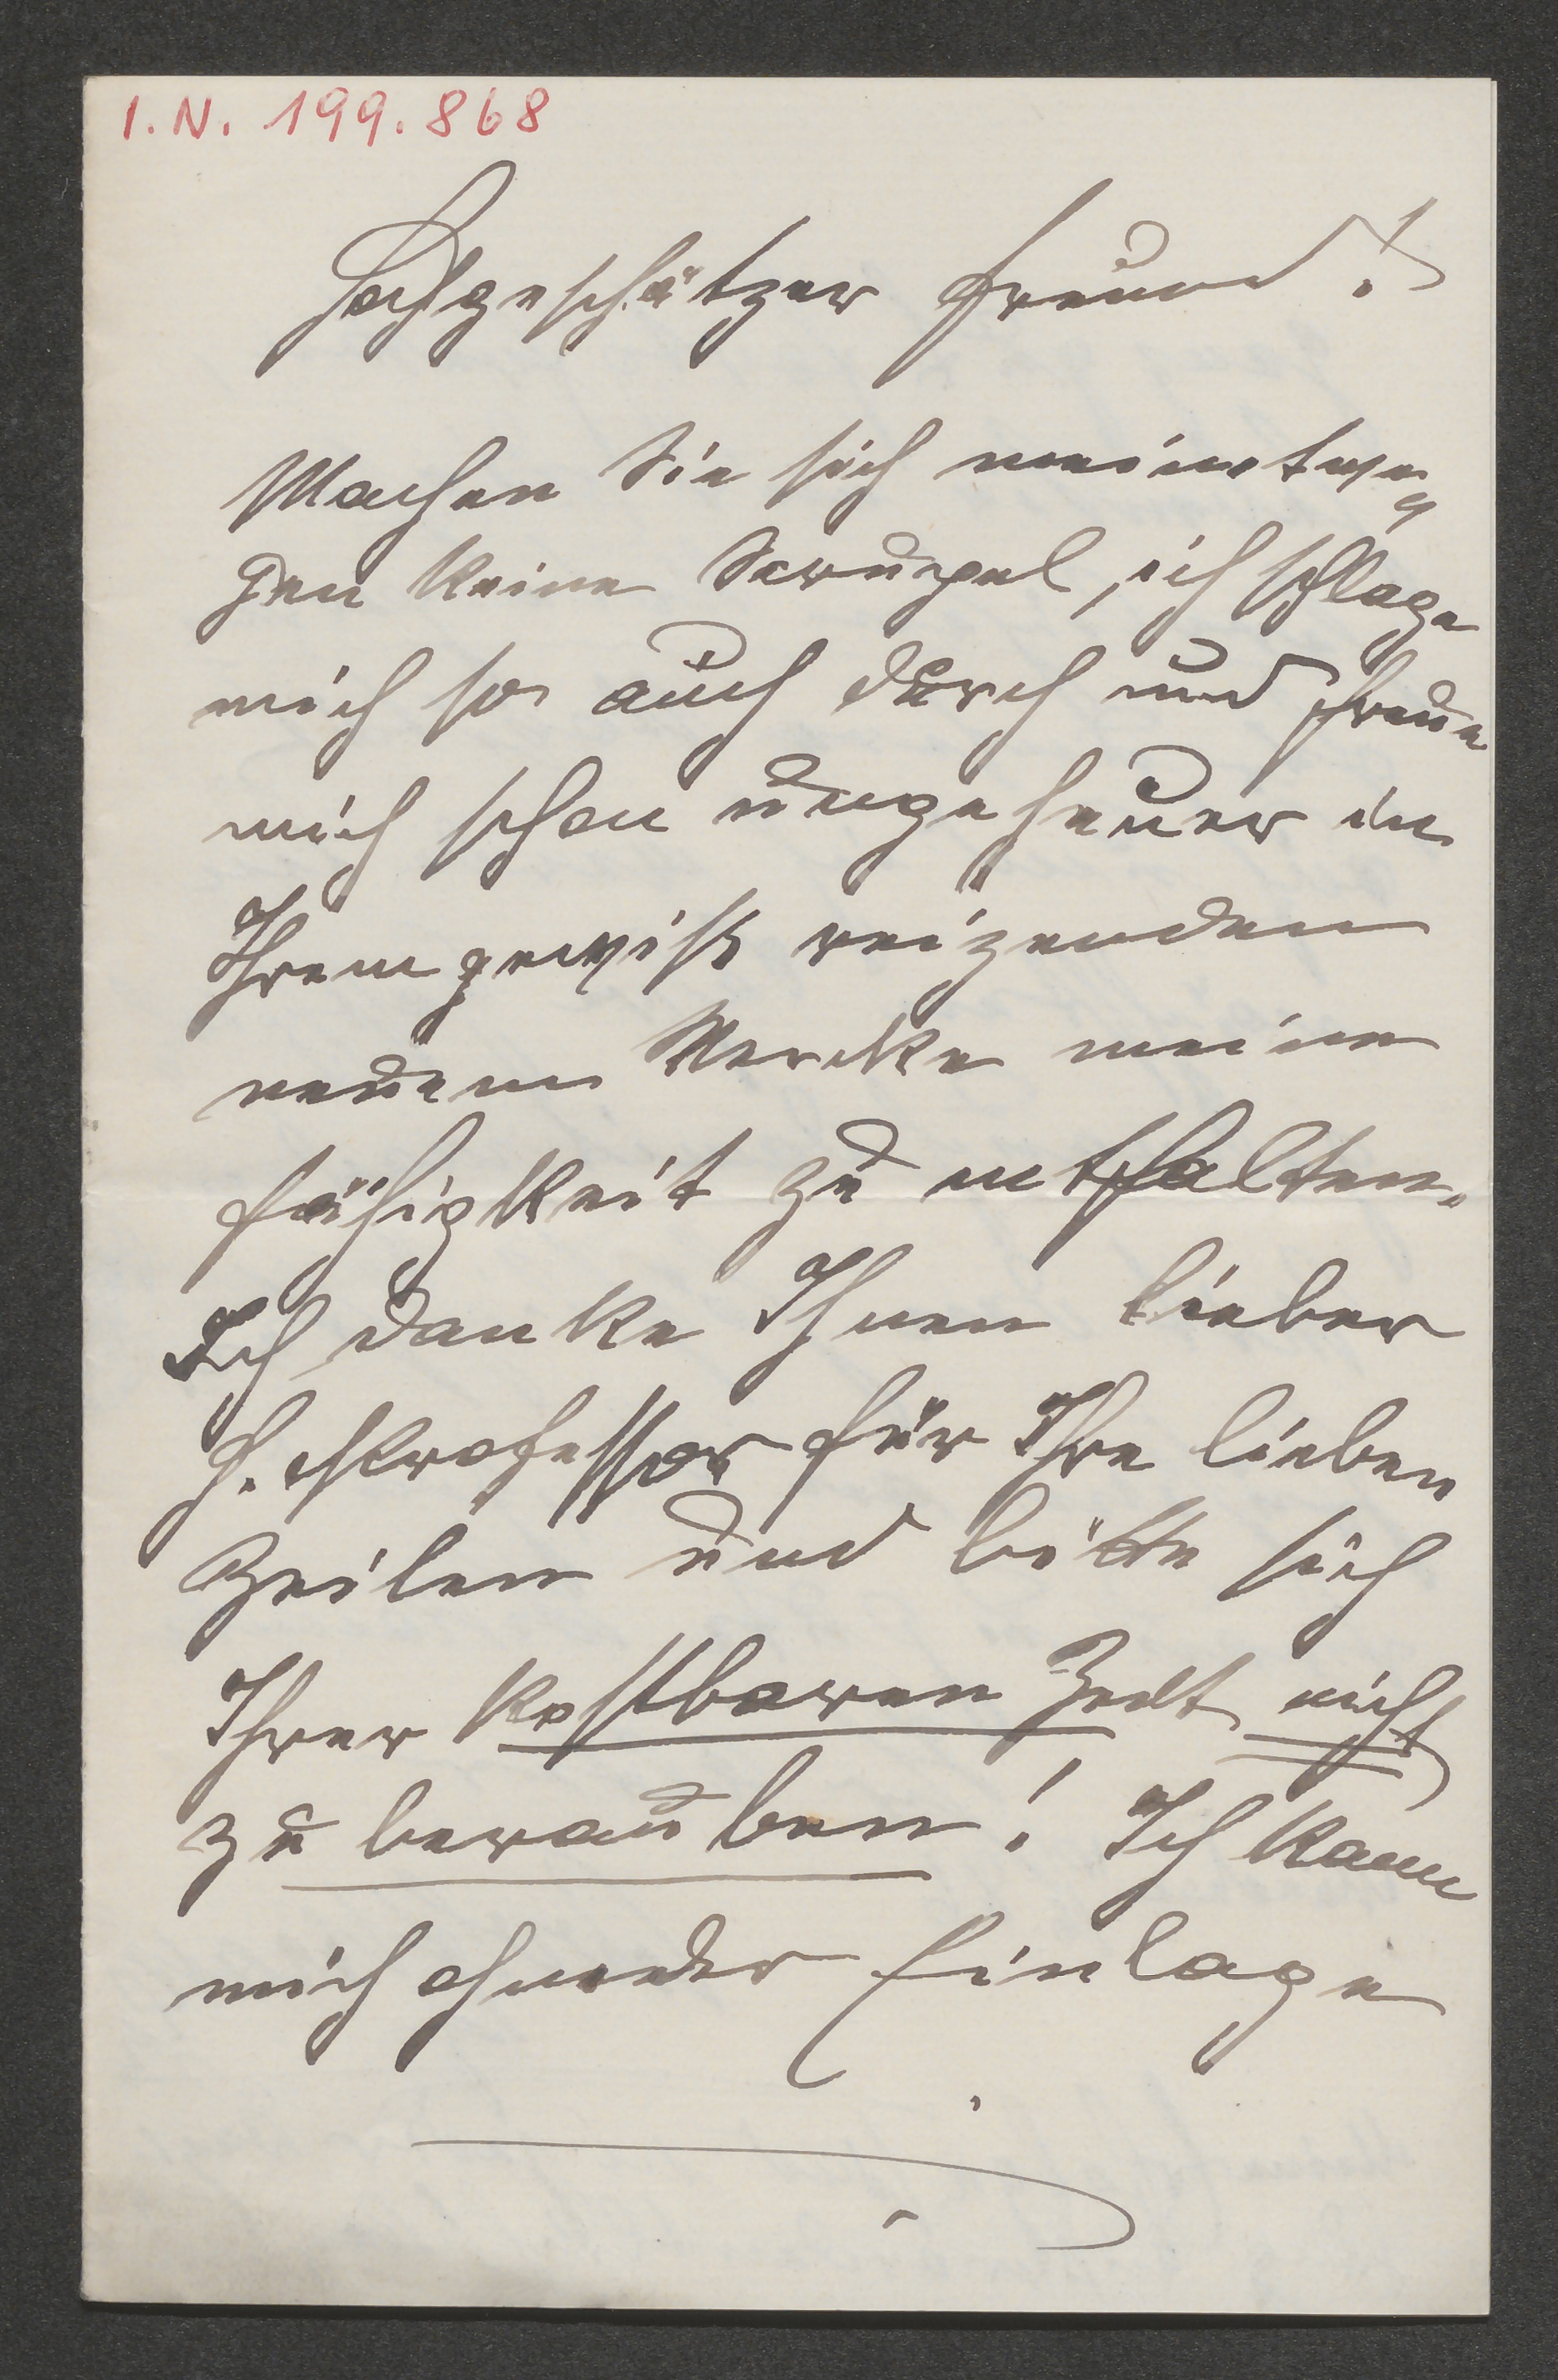 I.N. 199.868
Hochgeschätzer Freund!
Machen Sie sich meintwe„
gen keine Scrupel, ich schlage
mich so auch durch und freue
mich schon ungeheuer in
Ihrem gewiss reizenden
neuem Wercke meine
Fähigkeit zu entfalten.
Ich danke Ihnen lieber
H. Professor für Ihre lieben
Zeilen und bitte sich
Ihrer kostbaren Zeit nicht
zu berauben! Ich kann
mich ohne der Einlage